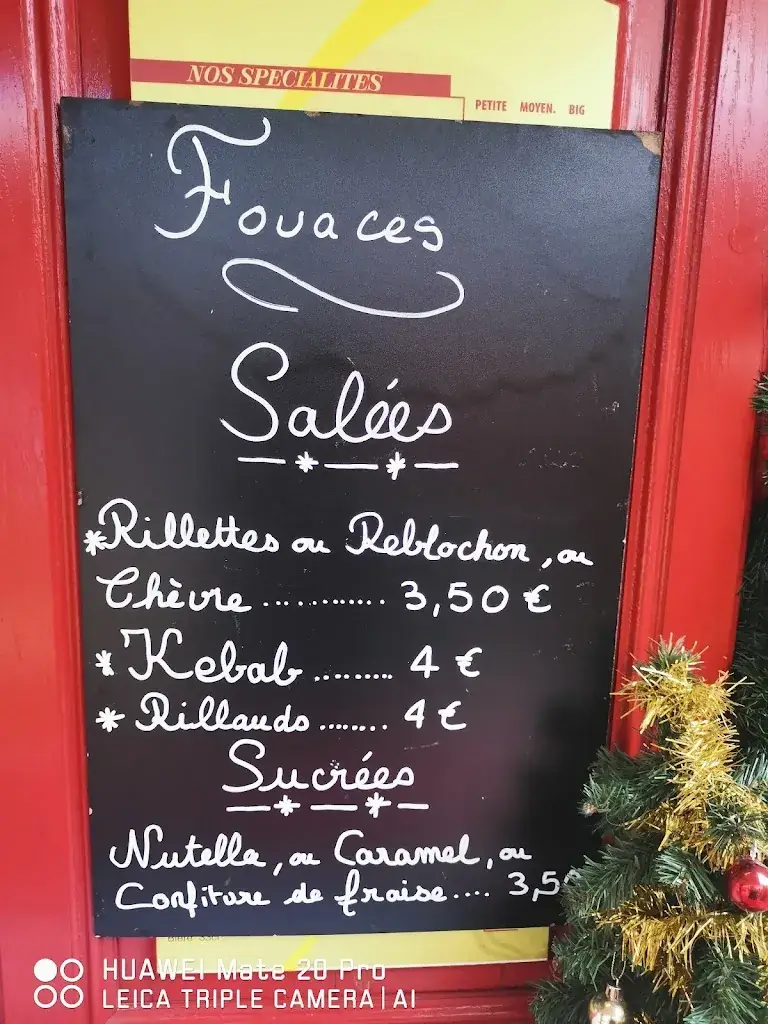 NOS SPECIALITES
PETITE MOYEN. BIG
Fouaces
Salées
*Rillettes ou Reblochon, ou
Chèvre ............ 3,50 €
* Kebab ......... 4 €
* Rillauds ........ 4 €
Sucrées
Nutella, ou Caramel, ou
Confiture de fraise.... 3,5
HUAWEI Mate 20 Pro
LEICA TRIPLE CAMERA | AI